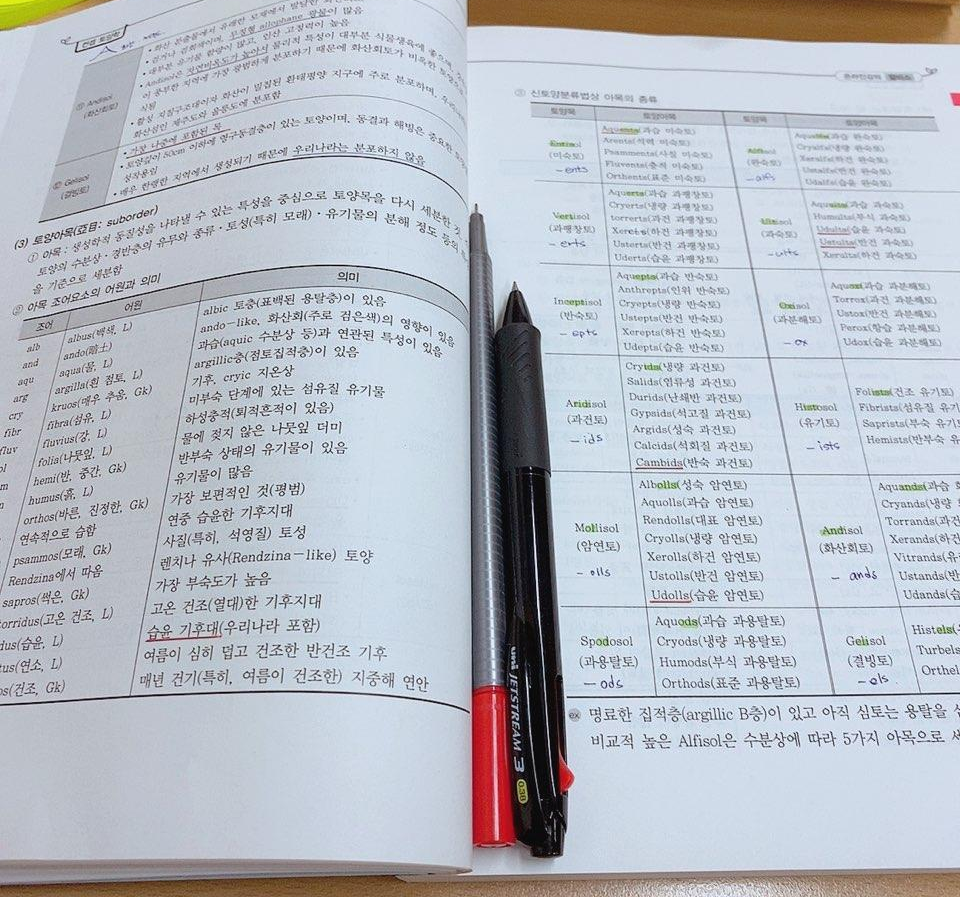 토양학
① Andisol
(화산회토)
• 가장 나중에 포함된 목
② Gelisol
(결빙토)
• 토양깊이 50cm 이하에 영구동결층이 있는 토양이며, 동결과 해빙은 중요한
• 매우 한랭한 지역에서 생성되기 때문에 우리나라는 분포하지 않음
(3) 토양아목(亞目: suborder)
① 아목 : 생성학적 동질성을 나타낼 수 있는 특성을 중심으로 토양목을 다시 세분한 것
토양의 수분상 · 경반층의 유무와 종류 · 토성(특히 모래) · 유기물의 분해 정도 등의
을 기준으로 세분함
② 아목 조어요소의 어원과 의미
조어 어원 의미
alb albus(백색, L) albic 토층(표백된 용탈층)이 있음
and ando(暗土) ando-like, 화산회(주로 검은색)의 영향이 있음
aqu aqua(물, L) 과습(aquic 수분상 등)과 연관된 특성이 있음
arg argilla(흰 점토, L) argillic층(점토집적층)이 있음
cry kruos(매우 추움, Gk) 기후, cryic 지온상
fibr fibra(섬유, L) 미부숙 단계에 있는 섬유질 유기물
fluv fluvius(강, L) 하성충적(퇴적흔적이 있음)
folia(나뭇잎, L) 물에 젖지 않은 나뭇잎 더미
hemi(반, 중간, Gk) 반부숙 상태의 유기물이 있음
humus(흙, L) 유기물이 많음
orthos(바른, 진정한, Gk) 가장 보편적인 것(평범)
연속적으로 습함 연중 습윤한 기후지대
psammos(모래, Gk) 사질(특히, 석영질) 토성
Rendzina에서 따옴 렌지나 유사(Rendzina-like) 토양
sapros(썩은, Gk) 가장 부숙도가 높음
torridus(고온 건조, L) 고온 건조(열대)한 기후지대
dus(습윤, L) 습윤 기후대(우리나라 포함)
tus(연소, L) 여름이 심히 덥고 건조한 반건조 기후
os(건조, Gk) 매년 건기(특히, 여름이 건조한) 지중해 연안
③ 신토양분류법상 아목의 종류
토양목 토양아목 토양목 토양아목
Entisol
(미숙토)
- ents
Aquents(과습 미숙토)
Arents(석력 미숙토)
Psamments(사질 미숙토)
Fluvents(충적 미숙토)
Orthents(표준 미숙토)
Alfisol
(완숙토)
- alfs
Aqualfs(과습 완숙토)
Cryalfs(냉량 완숙토)
Xeralfs(하건 완숙토)
Ustalfs(반건 완숙토)
Udalfs(습윤 완숙토)
Vertisol
(과팽창토)
- erts
Aquerts(과습 과팽창토)
Cryerts(냉량 과팽창토)
torrerts(과건 과팽창토)
Xererts(하건 과팽창토)
Usterts(반건 과팽창토)
Uderts(습윤 과팽창토)
Ultisol
(과숙토)
- ults
Aquults(과습 과숙토)
Humults(부식 과숙토)
Udults(습윤 과숙토)
Ustults(반건 과숙토)
Xerults(하건 과숙토)
Inceptisol
(반숙토)
- epts
Aquepts(과습 반숙토)
Anthrepts(인위 반숙토)
Cryepts(냉량 반숙토)
Ustepts(반건 반숙토)
Xerepts(하건 반숙토)
Udepts(습윤 반숙토)
Oxisol
(과분해토)
- ox
Aquox(과습 과분해토)
Torrox(과건 과분해토)
Ustox(반건 과분해토)
Perox(항습 과분해토)
Udox(습윤 과분해토)
Aridisol
(과건토)
- ids
Cryids(냉량 과건토)
Salids(염류성 과건토)
Durids(난쇄반 과건토)
Gypsids(석고질 과건토)
Argids(성숙 과건토)
Calcids(석회질 과건토)
Cambids(반숙 과건토)
Histosol
(유기토)
- ists
Folists(건조 유기토)
Fibrists(섬유질 유기
Saprists(부숙 유기토
Hemists(반부숙 유
Mollisol
(암연토)
- olls
Albolls(성숙 암연토)
Aquolls(과습 암연토)
Rendolls(대표 암연토)
Cryolls(냉량 암연토)
Xerolls(하건 암연토)
Ustolls(반건 암연토)
Udolls(습윤 암연토)
Andisol
(화산회토)
- ands
Aquands(과습
Cryands(냉량
Torrands(과건
Xerands(하건
Vitrands(유
Ustands(반
Udands(습
Spodosol
(과용탈토)
- ods
Aquods(과습 과용탈토)
Cryods(냉량 과용탈토)
Humods(부식 과용탈토)
Orthods(표준 과용탈토)
Gelisol
(결빙토)
- els
Histels(유
Turbels
Orthel
ex 명료한 집적층(argillic B층)이 있고 아직 심토는 용탈을
비교적 높은 Alfisol은 수분상에 따라 5가지 아목으로 세
uni JETSTREAM 3 0.38